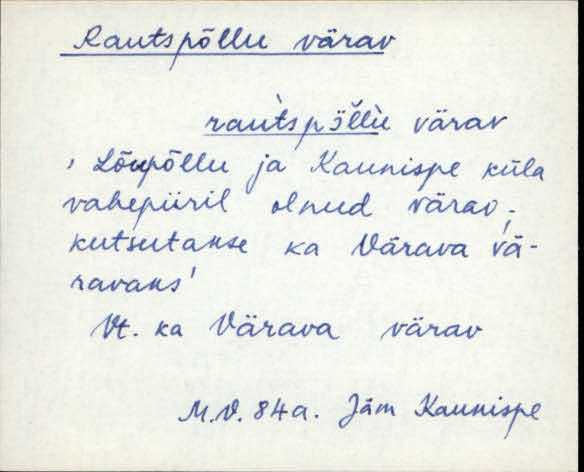 Rautspõllu värav
rautspə̈̆llù värav
' Lõupõllu ja Kaunispe küla
vahepiiril olnud värav;
kutsutakse ka Värava vä-
ravaks'
Vt. ka Värava värav
M.V. 84a. Jäm Kaunispe